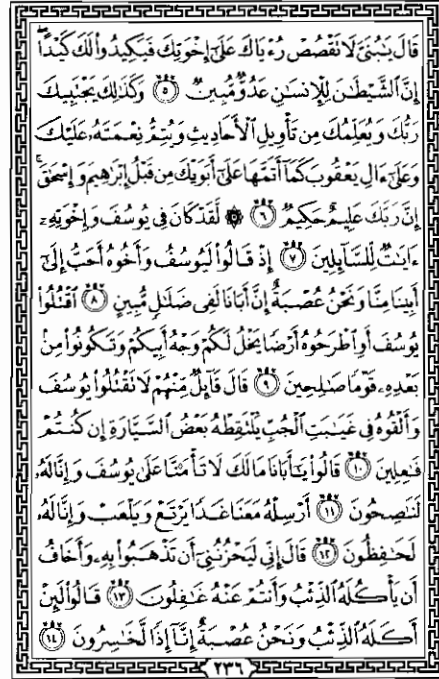 قَالَ يَٰبُنَيَّ لَا تَقۡصُصۡ رُءۡيَاكَ عَلَىٰٓ إِخۡوَتِكَ فَيَكِيدُواْ لَكَ كَيۡدًاۖ
إِنَّ ٱلشَّيۡطَٰنَ لِلۡإِنسَٰنِ عَدُوّٞ مُّبِينٞ ٥ وَكَذَٰلِكَ يَجۡتَبِيكَ
رَبُّكَ وَيُعَلِّمُكَ مِن تَأۡوِيلِ ٱلۡأَحَادِيثِ وَيُتِمُّ نِعۡمَتَهُۥ عَلَيۡكَ
وَعَلَىٰٓ ءَالِ يَعۡقُوبَ كَمَآ أَتَمَّهَا عَلَىٰٓ أَبَوَيۡكَ مِن قَبۡلُ إِبۡرَٰهِيمَ وَإِسۡحَٰقَۚ
إِنَّ رَبَّكَ عَلِيمٌ حَكِيمٞ ٦ ۞ لَّقَدۡ كَانَ فِي يُوسُفَ وَإِخۡوَتِهِۦٓ
ءَايَٰتٞ لِّلسَّآئِلِينَ ٧ إِذۡ قَالُواْ لَيُوسُفُ وَأَخُوهُ أَحَبُّ إِلَىٰٓ
أَبِينَا مِنَّا وَنَحۡنُ عُصۡبَةٌ إِنَّ أَبَانَا لَفِي ضَلَٰلٖ مُّبِينٍ ٨ ٱقۡتُلُواْ
يُوسُفَ أَوِ ٱطۡرَحُوهُ أَرۡضٗا يَخۡلُ لَكُمۡ وَجۡهُ أَبِيكُمۡ وَتَكُونُواْ مِنۢ
بَعۡدِهِۦ قَوۡمٗا صَٰلِحِينَ ٩ قَالَ قَآئِلٞ مِّنۡهُمۡ لَا تَقۡتُلُواْ يُوسُفَ
وَأَلۡقُوهُ فِي غَيَٰبَتِ ٱلۡجُبِّ يَلۡتَقِطۡهُ بَعۡضُ ٱلسَّيَّارَةِ إِن كُنتُمۡ
فَٰعِلِينَ ١٠ قَالُواْ يَٰٓأَبَانَا مَا لَكَ لَا تَأۡمَ۬نَّا عَلَىٰ يُوسُفَ وَإِنَّا لَهُۥ
لَنَٰصِحُونَ ١١ أَرۡسِلۡهُ مَعَنَا غَدٗا يَرۡتَعۡ وَيَلۡعَبۡ وَإِنَّا لَهُۥ
لَحَٰفِظُونَ ١٢ قَالَ إِنِّي لَيَحۡزُنُنِيٓ أَن تَذۡهَبُواْ بِهِۦ وَأَخَافُ
أَن يَأۡكُلَهُ ٱلذِّئۡبُ وَأَنتُمۡ عَنۡهُ غَٰفِلُونَ ١٣ قَالُواْ لَئِنۡ
أَكَلَهُ ٱلذِّئۡبُ وَنَحۡنُ عُصۡبَةٌ إِنَّآ إِذٗا لَّخَٰسِرُونَ ١٤
٢٣٦